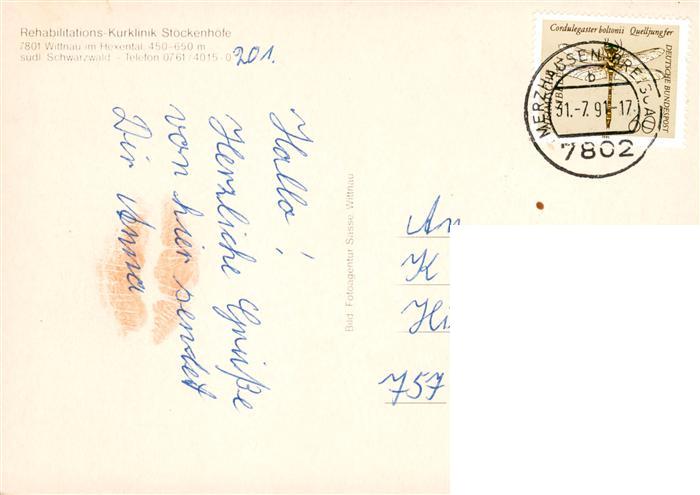 Rehabilitations-Kurklinik Stöckenhöfe
7801 Wittnau im Hexental, 450-650 m
südl. Schwarzwald - Telefon 0761/4015-0
201.
Hallo!
Herzliche Grüße
von hier sendet
Dir Anna
Bild: Fotoagentur Sasse, Wittnau
Cordulegaster boltonii Quelljungfer
DEUTSCHE BUNDESPOST
MERZHAUSEN, BREISGAU
b
31.-7.91-17
7802
An
K
Hi
757